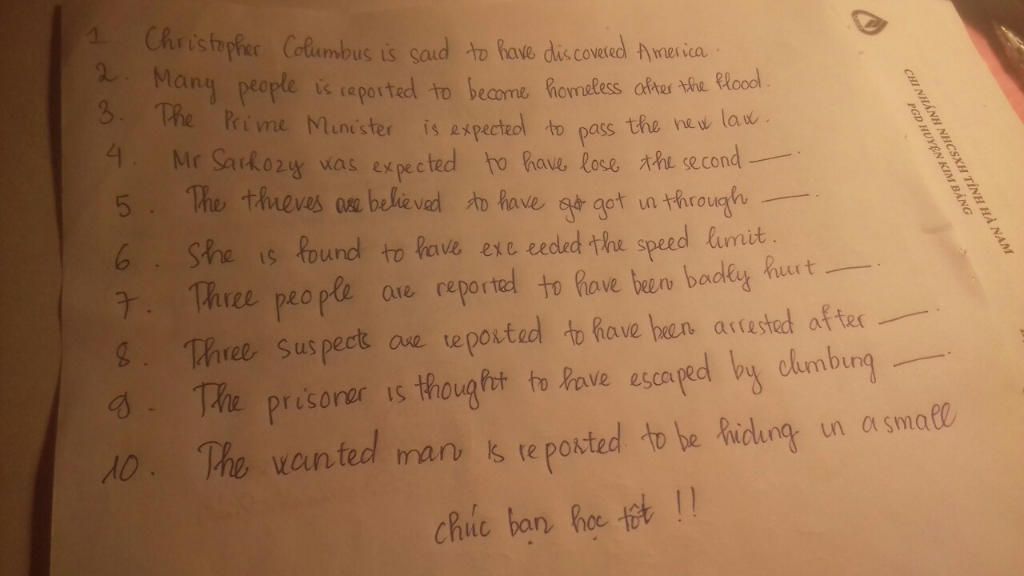 1 Christopher Columbus is said to have discovered America.
2. Many people is reported to become homeless after the flood.
3. The Prime Minister is expected to pass the new law.
4. Mr Sarkozy was expected to have lose the second —.
5. The thieves are believed to have got in through —.
6. She is found to have exceeded the speed limit.
7. Three people are reported to have been badly hurt —.
8. Three suspects are reported to have been arrested after —.
9. The prisoner is thought to have escaped by climbing —.
10. The wanted man is reported to be hiding in a small
chúc bạn học tốt !!
CHI NHÁNH NHCSXH TỈNH HÀ NAM
PGD HUYỆN KIM BẢNG